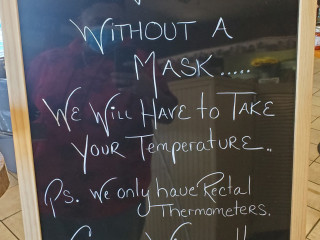 Without a
Mask.....
We Will Have to Take
Your Temperature..
Ps. We only have Rectal
Thermometers.